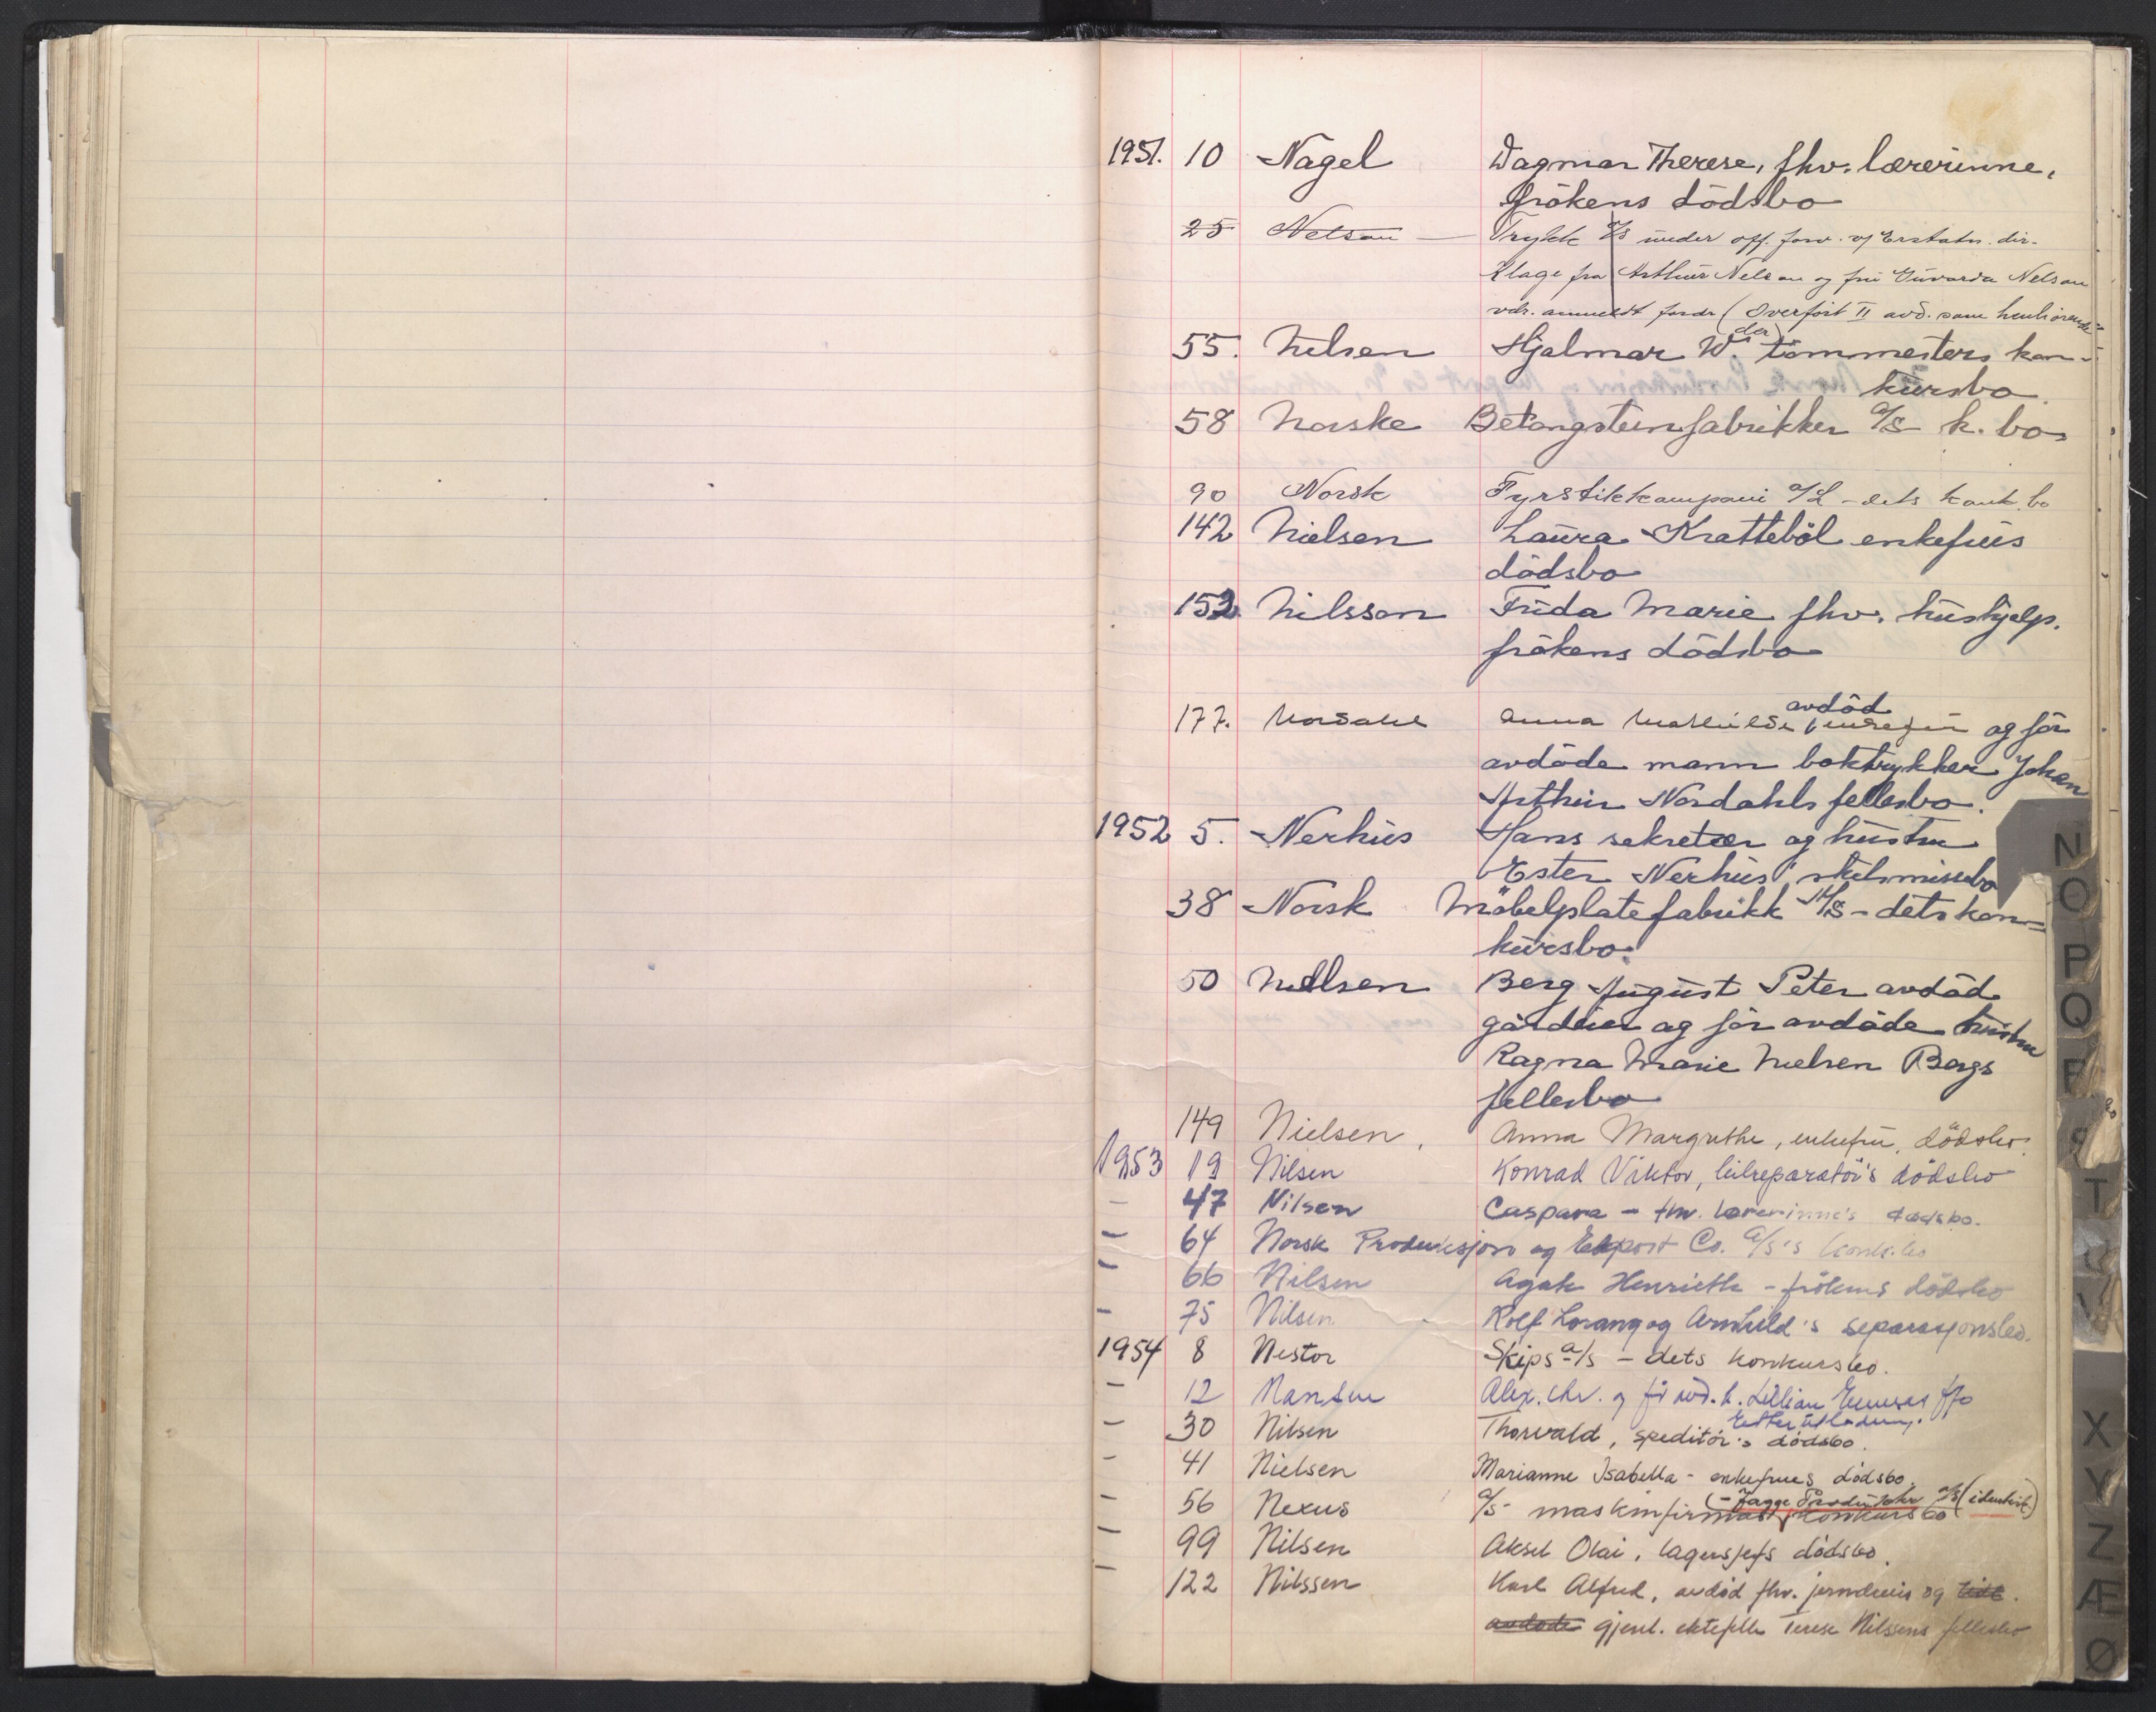 1951. 10 Nagel Dagmar Therese, fhv. lærerinne,
frökens dödsbo
25 Nelson — Trykk A/S under off. forv. v/ Erstatn. dir.
Klage fra Arthur Nelson og fru Nelson
vdr. anmeldt fordr. (Overfört II avd. som henhörende
55. Nilsen Hjalmar W. tömmesters kon-
der)
kursbo.
58 Norske Betongsteinfabrikker A/S k. bo
90 Norsk Fyrstikkompani A/L - dets konk. bo
142 Nielsen Laura Kratteböl enkefrus
dödsbo
152. Nilsson Frida Marie fhv. hushjelp.
frökens dödsbo
177. Nordahl Anna Mathilde, avdöd enkefru og för
avdöde mann boktrykker Johan
Arthur Nordahls fellesbo.
1952 5. Nerhus Hans sekretær og hustru
Ester Nerhus' skilsmissebo
38 Norsk Möbelplatefabrikk A/S - dets kon-
kursbo.
50 Nielsen Berg August Peter avdöd
gårdeier og för avdöde hustru
Ragna Marie Nielsen Bergs
fellesbo
149 Nielsen, Anna Margrethe, enkefru, dödsbo.
1953 19 Nilsen Konrad Viktor, bilreparatör's dödsbo
- 47 Nilsen Caspara - fhv. lærerinne's dødsbo.
- 64 Norsk Produksjon og Eksport Co. A/S's konk.bo
- 66 Nilsen Agate Henriette - frökens dödsbo
- 75 Nilsen Rolf Lorang og Arnhild's separasjonsbo.
1954 8 Nestor Skips A/S - dets konkursbo.
- 12 Nansen Alex. Chr. og Lillian
- 30 Nilsen Thorvald, speditör's dödsbo.
- 41 Nielsen Marianne Isabella - enkefrues dödsbo.
- 56 Nexus A/S maskinfirmas konkursbo (- Jagge Produkter A/S (identisk)
- 99 Nilsen Aksel Olai, lagersjefs dödsbo.
- 122 Nilssen Karl Alfred, avdöd fhv. jerndreier og tidl.
avdöde gjenl. ektefelle Terese Nilssens fellesbo
N
O
P
Q
R
S
T
U
V
X
Y
Z
Æ
Ø